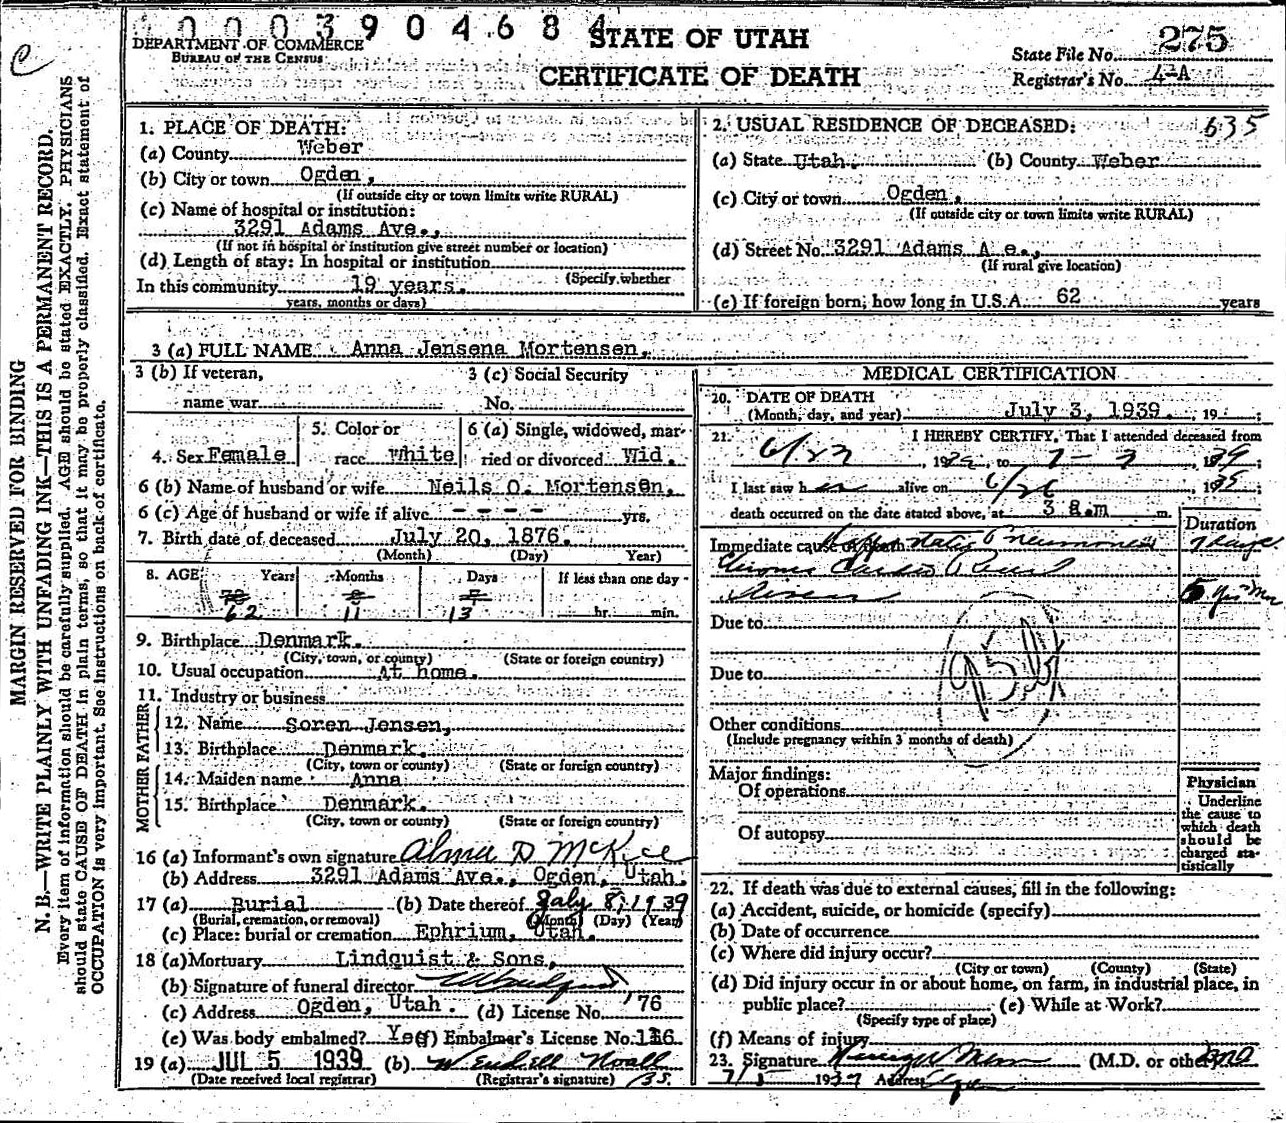 0003904684
DEPARTMENT OF COMMERCE
BUREAU OF THE CENSUS
STATE OF UTAH
CERTIFICATE OF DEATH
State File No. 275
Registrar's No. 4-A
MARGIN RESERVED FOR BINDING
N. B.—WRITE PLAINLY WITH UNFADING INK—THIS IS A PERMANENT RECORD.
Every item of information should be carefully supplied. AGE should be stated EXACTLY. PHYSICIANS
should state CAUSE OF DEATH in plain terms, so that it may be properly classified. Exact statement of
OCCUPATION is very important. See instructions on back of certificate.
1. PLACE OF DEATH:
(a) County Weber
(b) City or town Ogden,
(If outside city or town limits write RURAL)
(c) Name of hospital or institution:
3291 Adams Ave.,
(If not in hospital or institution give street number or location)
(d) Length of stay: In hospital or institution
(Specify whether
In this community 19 years.
years, months or days)
2. USUAL RESIDENCE OF DECEASED: 635
(a) State Utah. (b) County Weber
(c) City or town Ogden,
(If outside city or town limits write RURAL)
(d) Street No. 3291 Adams A e.,
(If rural give location)
(e) If foreign born, how long in U.S.A. 62 years
3 (a) FULL NAME Anna Jensena Mortensen.
3 (b) If veteran, 3 (c) Social Security
name war No.
4. Sex Female 5. Color or race White 6 (a) Single, widowed, married or divorced Wid.
6 (b) Name of husband or wife Neils O. Mortensen.
6 (c) Age of husband or wife if alive - - - - yrs.
7. Birth date of deceased July 20, 1876.
(Month) (Day) Year)
8. AGE Years Months Days If less than one day
62 11 13 hr. min.
9. Birthplace Denmark.
(City, town, or county) (State or foreign country)
10. Usual occupation At home.
11. Industry or business
FATHER
12. Name Soren Jensen,
13. Birthplace Denmark.
(City, town or county) (State or foreign country)
MOTHER
14. Maiden name Anna
15. Birthplace Denmark.
(City, town or county) (State or foreign country)
16 (a) Informant's own signature
(b) Address 3291 Adams Ave., Ogden, Utah.
17 (a) Burial (b) Date thereof July 8, 1939
(Burial, cremation, or removal) (Month) (Day) (Year)
(c) Place: burial or cremation Ephrium, Utah.
18 (a) Mortuary Lindquist & Sons,
(b) Signature of funeral director
(c) Address Ogden, Utah. (d) License No. 76
(e) Was body embalmed? Yes (f) Embalmer's License No. 116
19 (a) JUL 5 1939 (b) Wendell Noall
(Date received local registrar) (Registrar's signature) 35.
MEDICAL CERTIFICATION
20. DATE OF DEATH
(Month, day, and year) July 3, 1939. , 19 ;
21. I HEREBY CERTIFY, That I attended deceased from
6/22 , 1939, to 7-3 , 1939
I last saw her alive on , 19
death occurred on the date stated above, at 3 a.m m.
Duration
Immediate cause of death Hypostatic Pneumonia 7 days
Disease
Due to
Due to
95b
Other conditions
(Include pregnancy within 3 months of death)
Major findings:
Of operations
Of autopsy
Physician
Underline
the cause to
which death
should be
charged sta-
tistically
22. If death was due to external causes, fill in the following:
(a) Accident, suicide, or homicide (specify)
(b) Date of occurrence
(c) Where did injury occur?
(City or town) (County) (State)
(d) Did injury occur in or about home, on farm, in industrial place, in
public place? (e) While at Work?
(Specify type of place)
(f) Means of injury
23. Signature (M.D. or other)
7/5 1939 Address Ogden